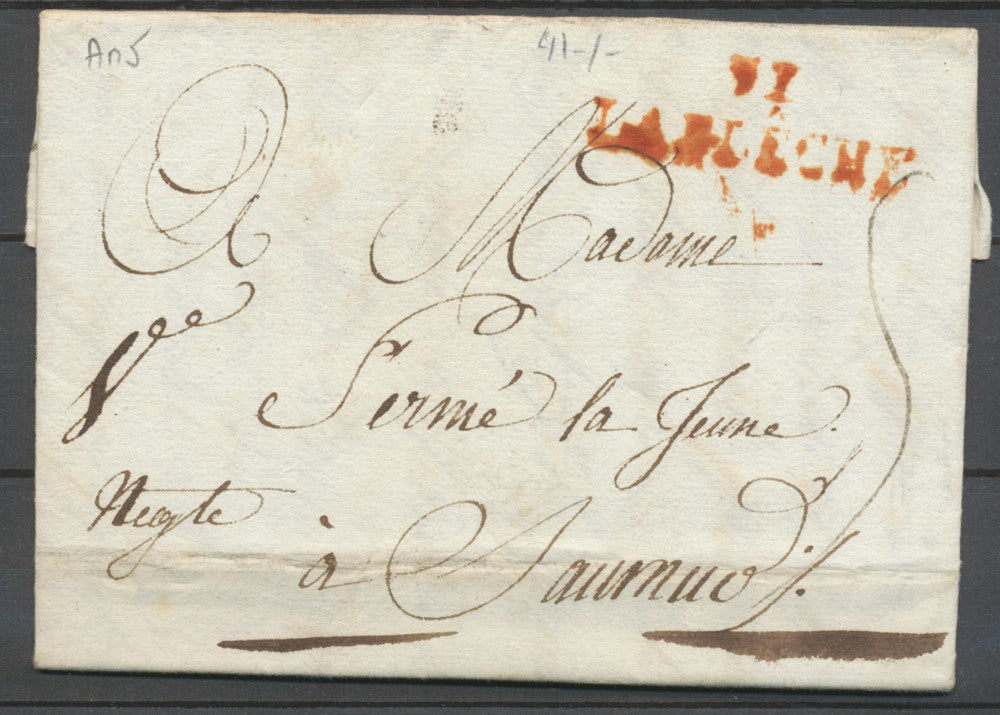 An 5
41-/-
71
LA FLÈCHE
A Madame
Vee Fermé la Jeune
Negte
à Saumur
5